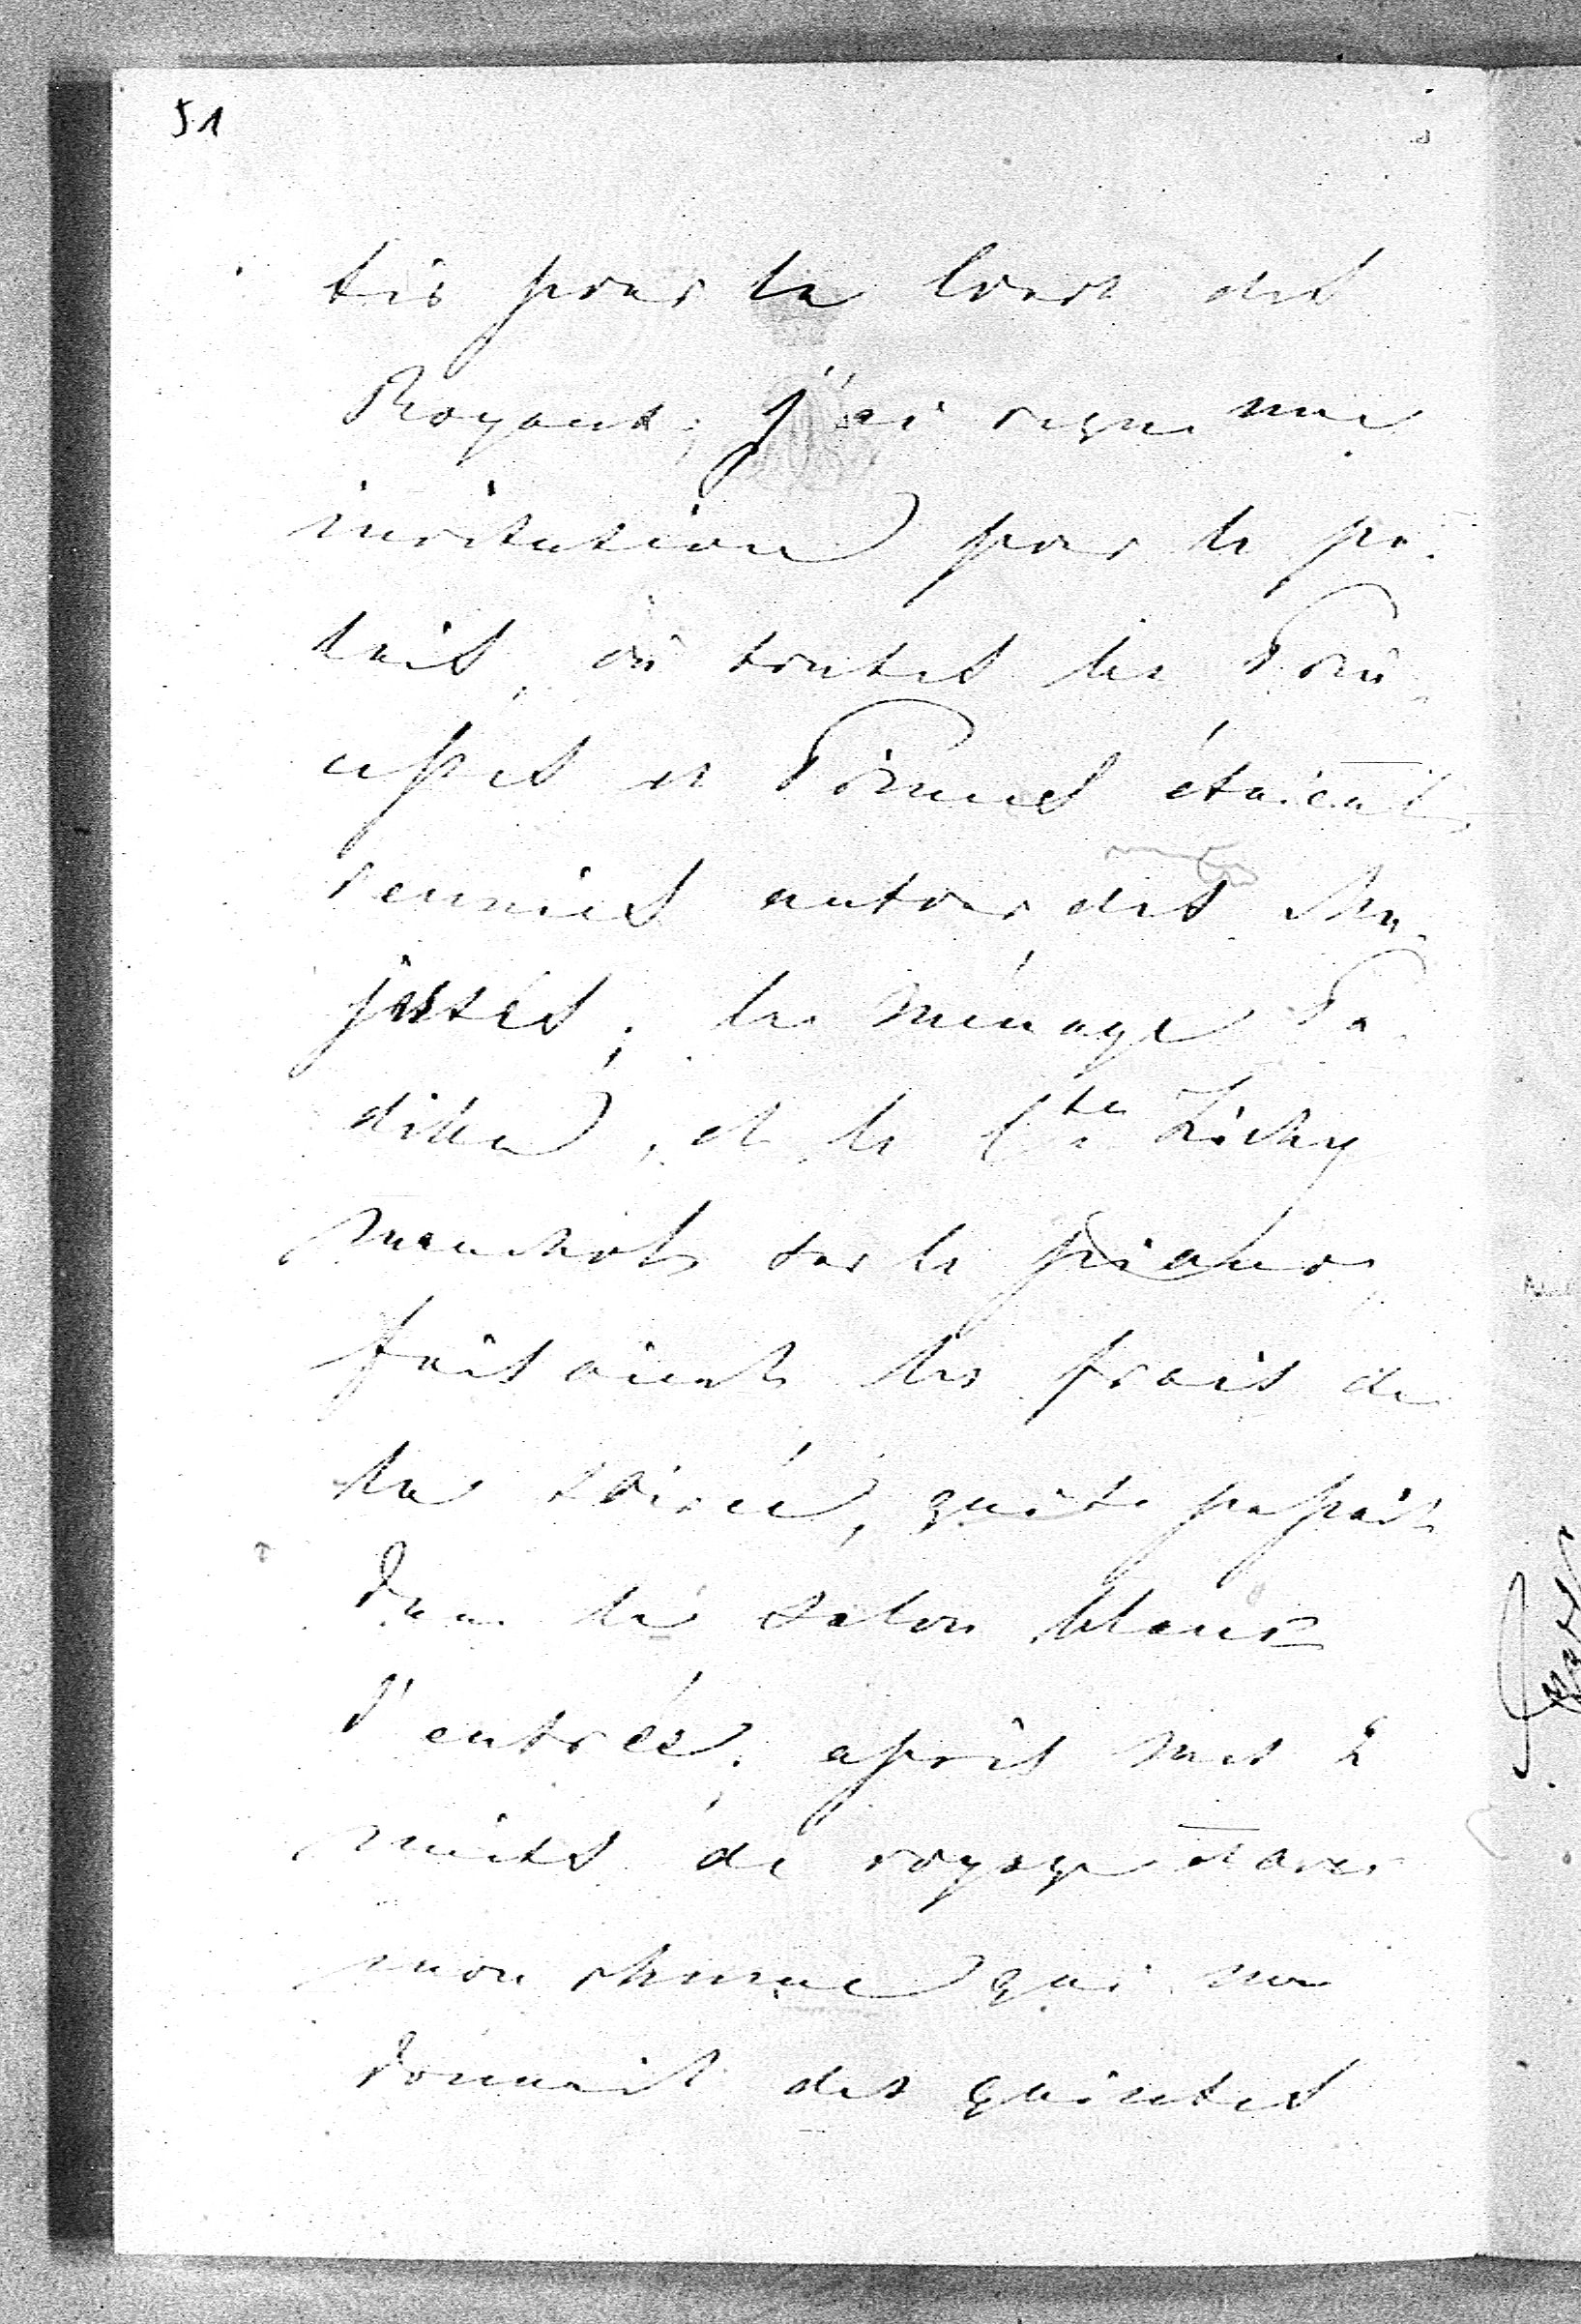 51
tis pour la Cour des
Royaut, j'ai reçu une
invitation pour le pa-
lais, où toutes les Prin-
cesses et Princes étaient
reunies autour des Ma-
jestés; le ménage Pa-
dilla, et le Cte Zichy
manchot sur le piano,
faisaient les frais de
la soirée, qui se passait
dans le salon blanc
d'entrée, après mes 2
nuits de voyage et avec
mon rhume qui me
donnait des quintes